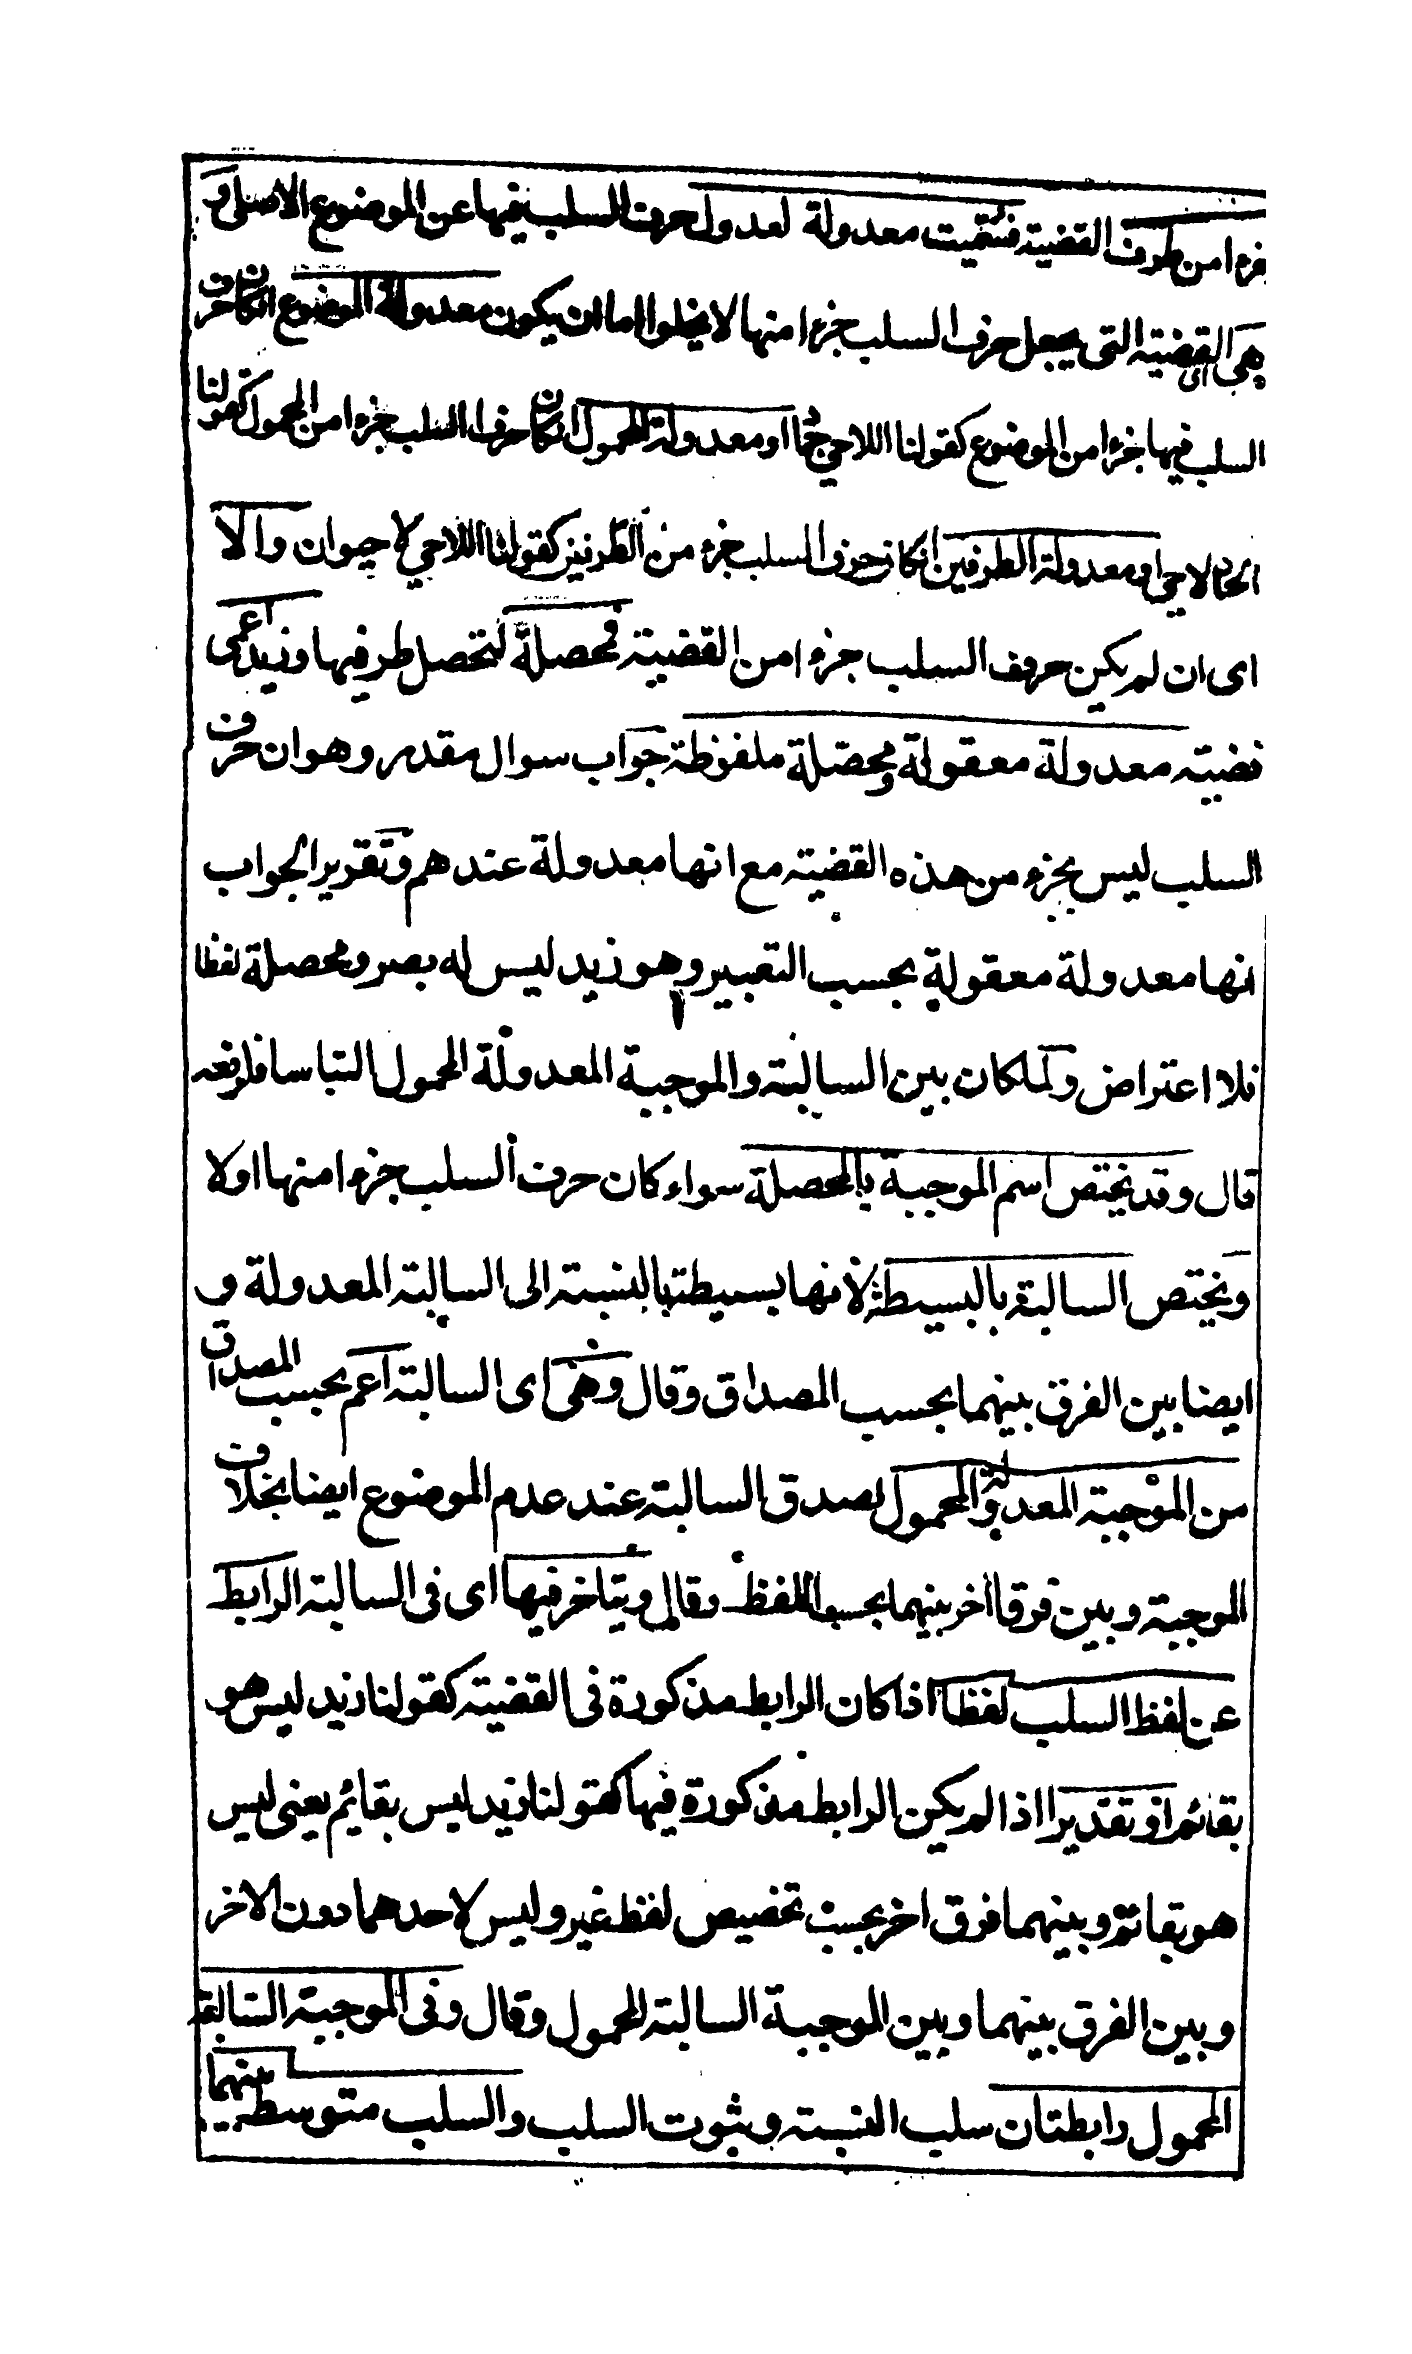 جزءا من طرف القضية فسميت معدولة لعدول حرف السلب فيها عن الموضوع الاصلى و
هى اى القضية التى يجعل حرف السلب جزءا منها لا يخلوا اما ان يكون معدولة الموضوع انكان حرف
السلب فيها جزءا من الموضوع كقولنا اللاحى جماد او معدولة المحمول انكان حرف السلب جزءا من المحمول كقولنا
الجماد لاحى او معدولة الطرفين انكان حرف السلب جزء من الطرفين كقولنا اللاحى لا حيوان والا
اى ان لم يكن حروف السلب جزءا من القضية فمحصلة لتحصل طرفيها وزيد اعمى
قضية معدولة معقولة ومحصلة ملفوظة جواب سوال مقدم وهو ان حرف
السلب ليس بجزء من هذه القضية مع انها معدولة عندهم وتقرير الجواب
انها معدولة معقولة بحسب التعبير وهو زيد ليس له بصر ومحصلة لفظا
فلا اعتراض ولما كان بين السالبة والموجبة المعدولة المحمول التباسا فلرفعه
قال وقد يختص اسم الموجبة بالمحصلة سواء كان حرف السلب جزءا منها اولا
ويختص السالبة بالبسيطة لانها بسيطة بالنسبة الى السالبة المعدولة و
ايضا بين الفرق بينهما بحسب المصداق وقال وهى اى السالبة اعم بحسب المصداق
من الموجبة المعدولة المحمول لصدق السالبة عند عدم الموضوع ايضا بخلاف
الموجبة وبين فرقا اخر بينهما بحسب اللفظ وقال ويتاخر فيها اى فى السالبة الرابط
عن لفظ السلب لفظا اذا كان الرابط مذكورة فى القضية كقولنا زيد ليس هو
بقائم او تقديرا اذا لم يكن الرابط مذكورة فيها كقولنا زيد ليس بقائم يعنى ليس
هو بقائم وبينهما فرق اخر بحسب تخصيص لفظ غير وليس لاحدهما دون الاخر
وبين الفرق بينهما وبين الموجبة السالبة المحمول وقال وفى الموجبة السالبة
المحمول رابطتان سلب النسبة وثبوت السلب والسلب متوسط بينهما